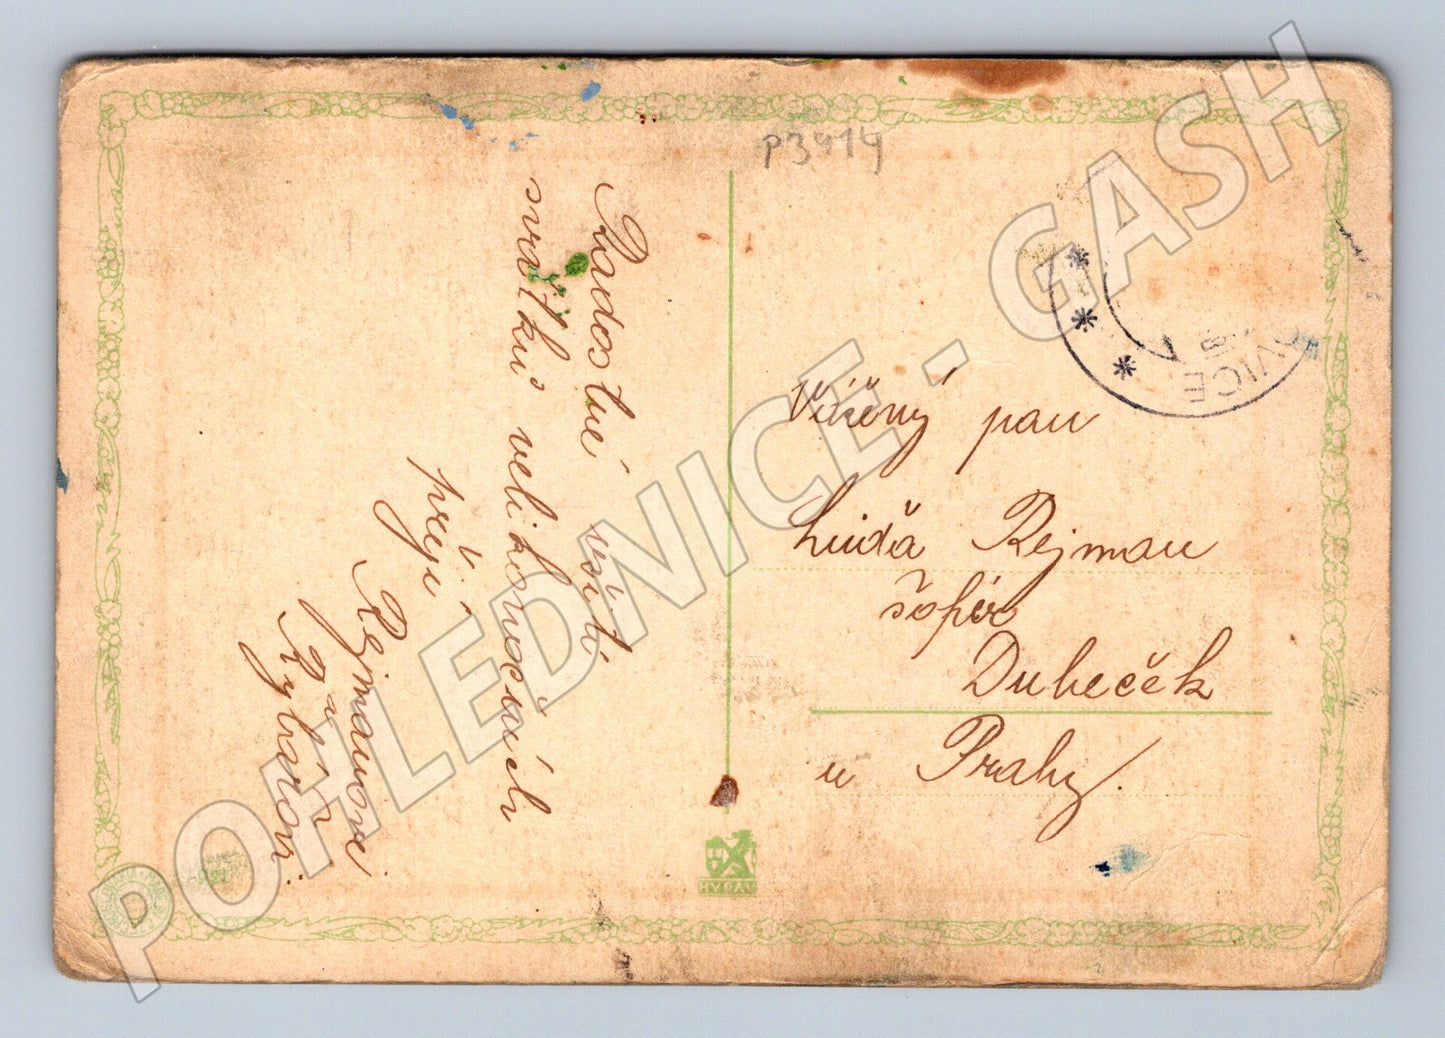 P3414
Radostné užití
svátků velikonočních
přejí
Rejmanovi
a
Rybárovi
Vážený pan
Luďa Rejman
šofér
Dubeček
u Prahy.
VICE
HYPAV
POHLEDNICE - GASH